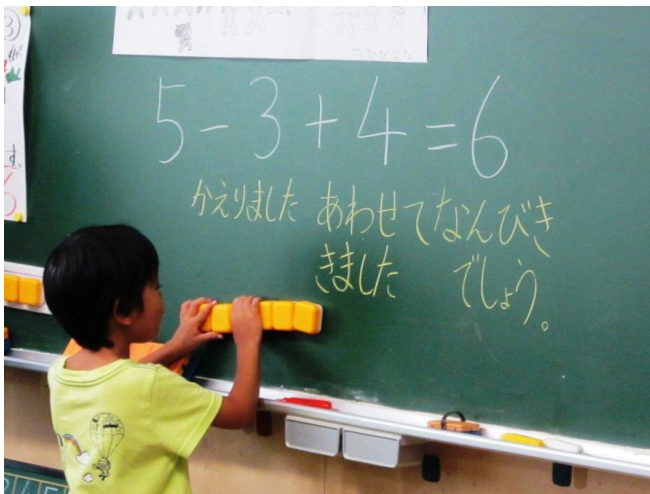 5-3+4=6
かえりました あわせてなんびき
きました でしょう。